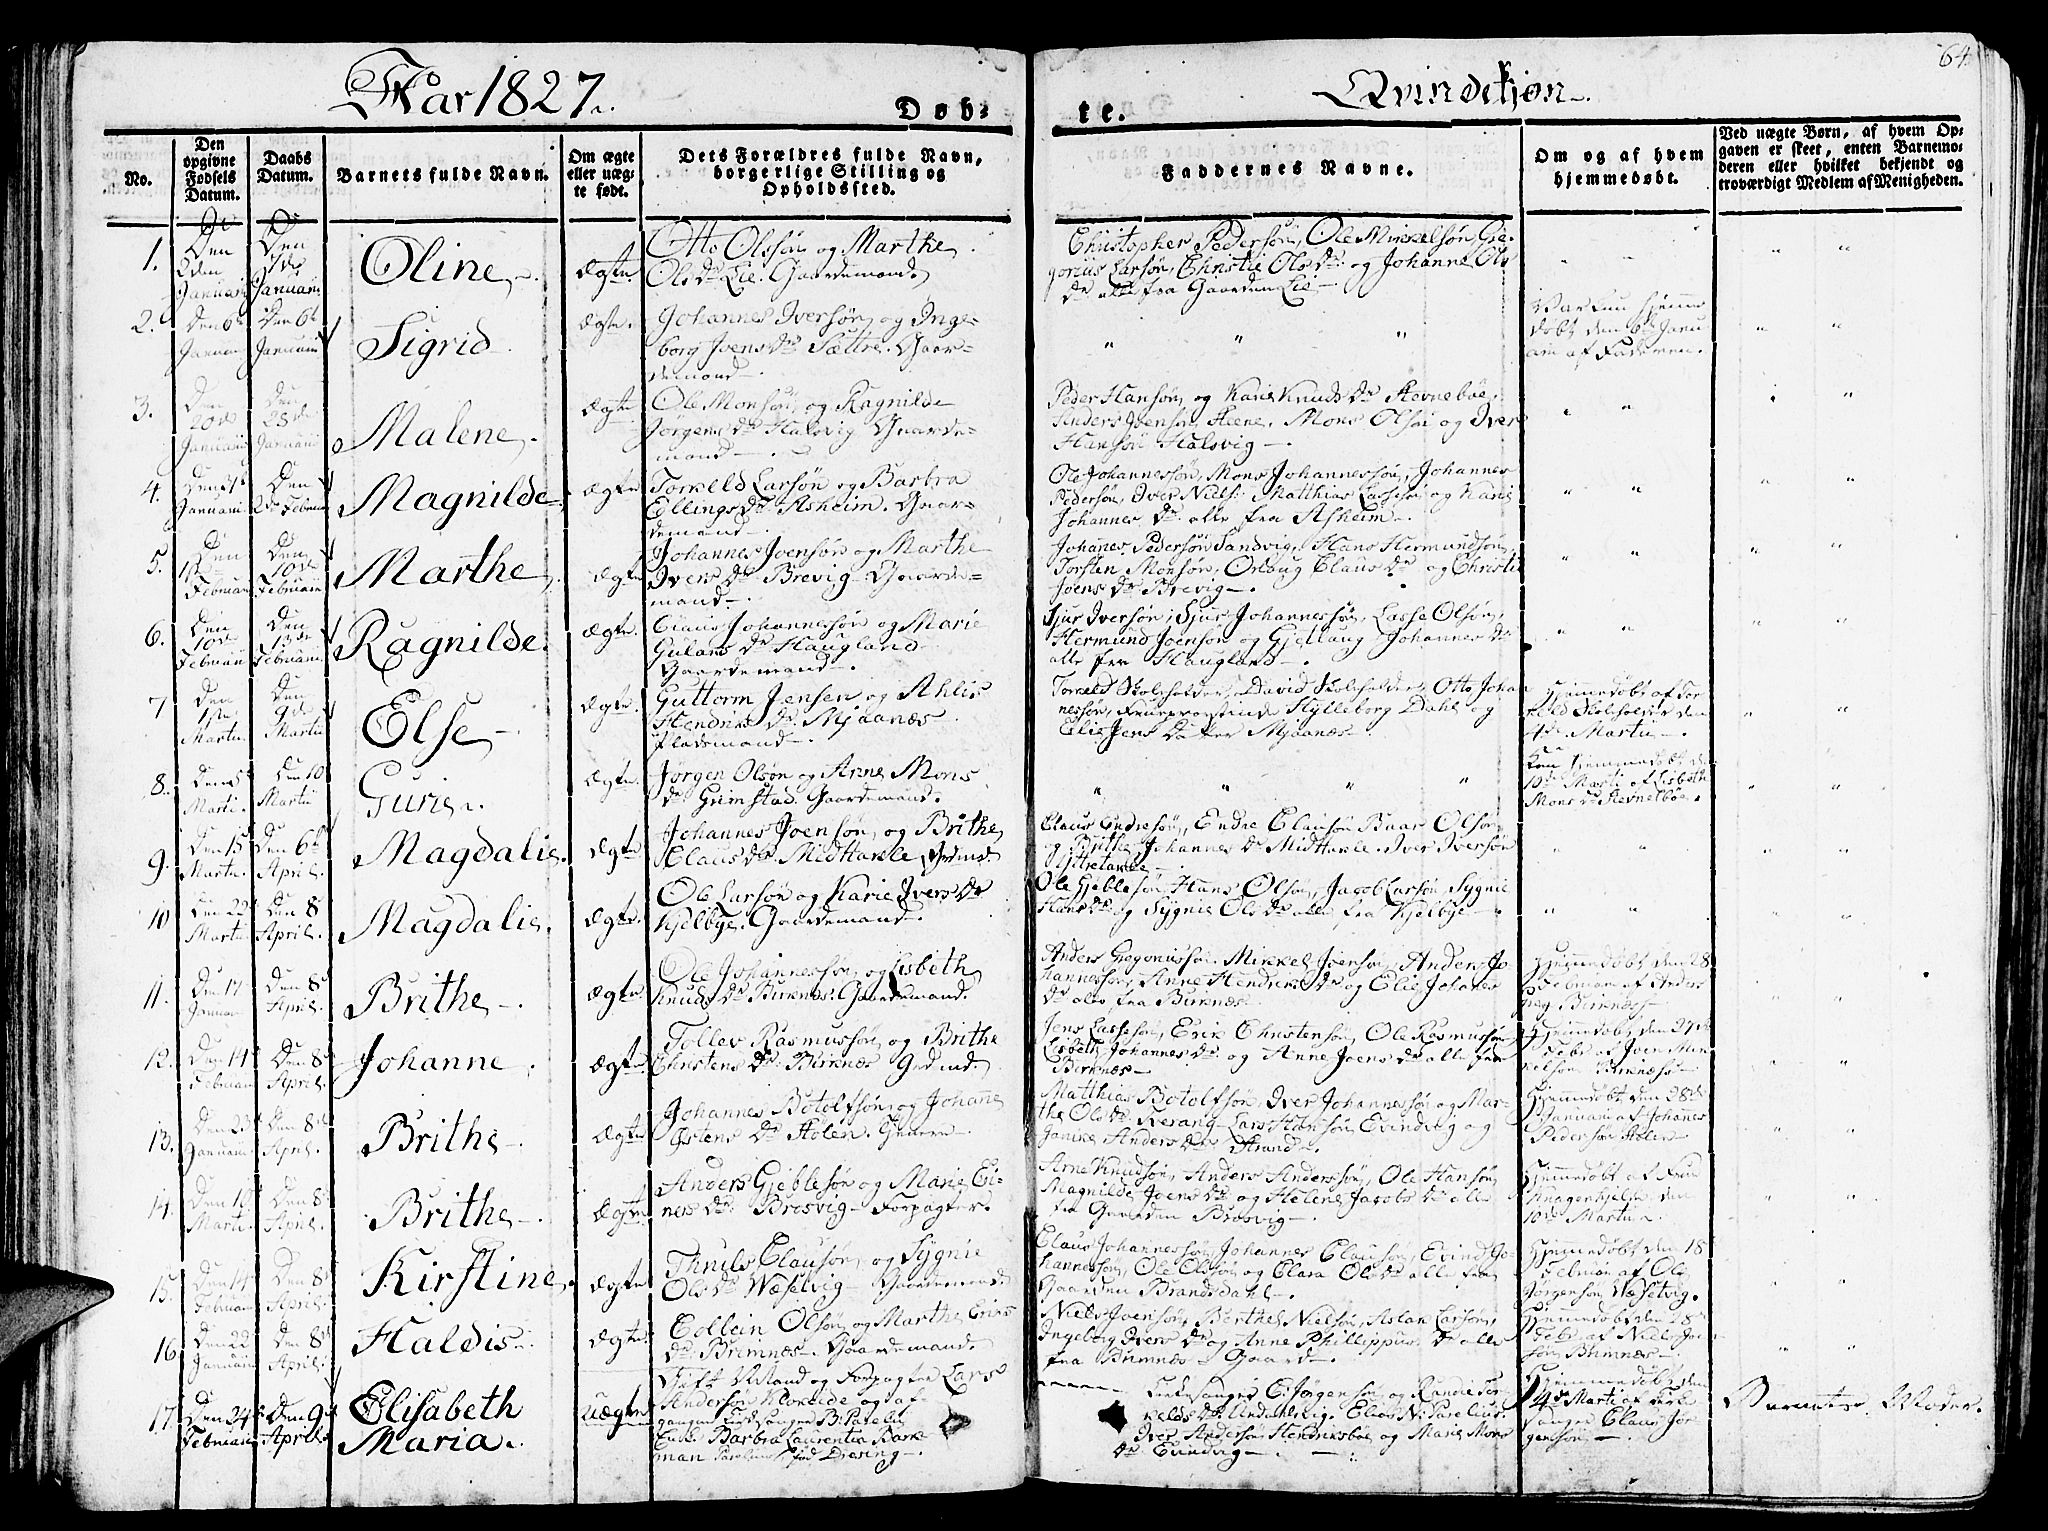 Aar 1827.
Døb-
te.
Qvindekjøn.
64.
No.
Den opgivne Fødsels Datum.
Daabs Datum.
Barnets fulde Navn.
Om ægte eller uægte født.
Dets Forældres fulde Navn, borgerlige Stilling og Opholdssted.
Faddernes Navne.
Om og af hvem hjemmedøbt.
Ved uægte Børn, af hvem Opgaven er skeet, enten Barnemoderen eller hvilket bekiendt og troværdigt Medlem af Menigheden.
1.
Den
2den
Januarii
Den
7de
Januarii
Oline
Ægte
Otto Olsøn og Marthe
Olsdr Lie. Gaardemand
Christopher Pedersøn, Ole Mikkelsøn, Gre-
gorius Larsøn, Christie Olsdr og Johanne Ols
dr alle fra Gaarden Lie
2.
Den 6te
Januarii
Den 6te
Januarii
Sigrid
Ægte
Johannes Iversøn og Inge-
borg Joensdr Sættre. Gaar-
demand
Var kun hjemme
døbt den 6te Janu
arii af Faderen.
3.
Den
20de
Januarii
Den
28de
Januarii
Malene
Ægte
Ole Monsøn og Ragnilde
Jørgensdr Halsvig Gaarde-
mand
Peder Hansøn og Karie Knudsdr Stevnebøe,
Anders Joensøn Steene, Mons Olsøn og Iver
Hansøn Halsvig
4.
Januarii
Den
2de Februarii
Magnilde
Ægte
Torkeld Larsøn og Barbra
Ellingsdr Asheim. Gaar-
demand
Ole Johannessøn, Mons Johannessøn, Johannes
Pedersøn, Iver Niels. Matthias Lassesøn og Karie
Johannesdr. alle fra Asheim
5.
Den
Februarii
Den
10de
Februarii
Marthe
Ægte
Johannes Joensøn og Marthe
Iversdr Brevig Gaarde-
mand
Johannes Pedersøn Sandvig, Hans Hermundsøn,
Torsten Monsøn, Orlaug Clausdr og Christi
Joensdr Brevig
6.
Den
10de
Februarii
Den
13de
Februarii
Ragnilde
Ægte
Claus Johannessøn og Marie
Gulaksdr Haugland
Gaardemand
Sjur Iversøn, Sjur Johannessøn, Lasse Olsøn,
Hermund Joensøn og Gjellaug Johannesdr
alle fra Haugland
7
Den
1ste
Martii
Den
9de
Martii
Else
Ægte
Guttorm Jensen og Ahlis
Hendriksdr Mjaanæs
Pladsmand
Torkeld Skoleholder, David Skoleholder, Otto Johan
nessøn, Frue Hylleborg Dahl og
Elie Jens Datter Mjaanæs
Hjemmedøbt af Tor
keld Skoleholder den
4de Martii
8.
Den 5te
Martii
Den 10
Martii
Gurie
Ægte
Jørgen Olsøn og Anne Mons
dr Grimstad. Gaardemand.
Kun hjemmedøbt d.
10de Martii af Lisbeth
Monsdr Stevnebøe.
9.
Den 15
Martii
Den 6te
April
Magdalie
Ægte
Johannes Joensøn og Brithe
Clausdr MidTakle. Grdmd.
Claus Endresøn, Endre Clausøn Baar Olsøn
og Brithe Johannesdr MidTakle. Iver Iversøn
Yttretakle
10
Den 22
Martii
Den 8
April.
Magdalie.
Ægte
Ole Larsøn og Karie Iversdr
Kjelbye. Gaardemand.
Ole Gieblesøn, Hans Olsøn, Jacob Larsøn, Sygnie
Hansdr og Sygnie Olsdr alle fra Kjelbye
11.
Den 17
Januarii
Den 8
April.
Brithe
Ægte
Ole Johannessøn og Lisbeth
Knudsdr Birknæs. Gaardemand.
Anders Gregoriussøn. Mikkel Joensøn, Anders Jo-
hannessøn, Anne Hendriksdr og Elie Johannes
dr alle fra Birknæs
Hjemmedøbt den 28
Februarii af Anders
Greg Birknæs
12.
Den 14
Februarii
Den 8de
April.
Johanne
Ægte
Tollev Rasmussøn og Brithe
Christensdr Birknæs Grdmd.
Jens Lassesøn, Erik Christensøn, Ole Rasmussøn
Lisbeth Johannesdr og Anne Joensdr alle fra
Birknæs
Hjemmedøbt den 27de
Febr af Joen Mik
kelsøn Birknæs
13.
Den 23de
Januarii
Den 8de
April.
Brithe
Ægte
Johannes Botolfsøn og Johane
Østensdr Holen.
Matthias Botolfsøn, Iver Johannessøn og Mar-
the Olsdr Lars Hansøn Eivindvig og
Andersdr Strand
Hjemmedøbt den 28de
Januarii af Johannes
Pedersøn Holen
14.
Den 10de
Martii
Den 8de
April.
Brithe
Ægte
Anders Gieblesøn og Marie Ei-
nersdr Brosvig Forpagter.
Arne Knudsøn, Anders Anderssøn, Ole Hansøn,
Magnilde Joensdr og Helene Jacobsdr alle
fra Gaarden Brosvig
Hjemmedøbt af Frue
Knagenhjelm den
10de Martii
15.
Den 14
Februarii
Den 8de
April.
Kirstine
Ægte
Clausøn og Sygnie
Olsdr Wæselvig Gaardemand
Claus Johannessøn, Johannes Clausøn, Eivind Jo-
hannessøn, Ole Olssøn og Clara Olsdr alle fra
Gaarden Brandsdahl
Hjemmedøbt den 18
Februar af Ole
Jørgensøn Wæselvig.
16
Den 22
Januarii
Den 8de
April.
Haldis
Ægte
Collein Olsøn og Marthe Eriks
dr Brimnæs. Gaardemand.
Niels Joensøn, Berthel Nielsøn, Aslak Larsøn,
Ingeborg Iversdr og Anne Phillippusdr alle
fra Brimnæs Gaard
Hjemmedøbt den 28de
Febr. af Niels Joen
søn Brimnæs
17.
Den 24
Februarii
Den 9de
April.
Elisabeth
Maria.
Uægte
og Forpagter Lars
Andersøn og af-
gangne
Enke Barbra Laurentia Bark-
man
C. Jørgensøn og Randie Tor
keldsdr Elias N. Parelius.
Iver Andersøn Hendriksbøe og Marie Mons
dr Eivindvig
Hjemmedøbt den
4de Martii af Kirke
sanger Claus Jør
gensøn
Barnets Moder.